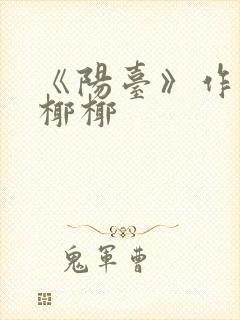 《陽臺》作
椰椰
鬼軍曹